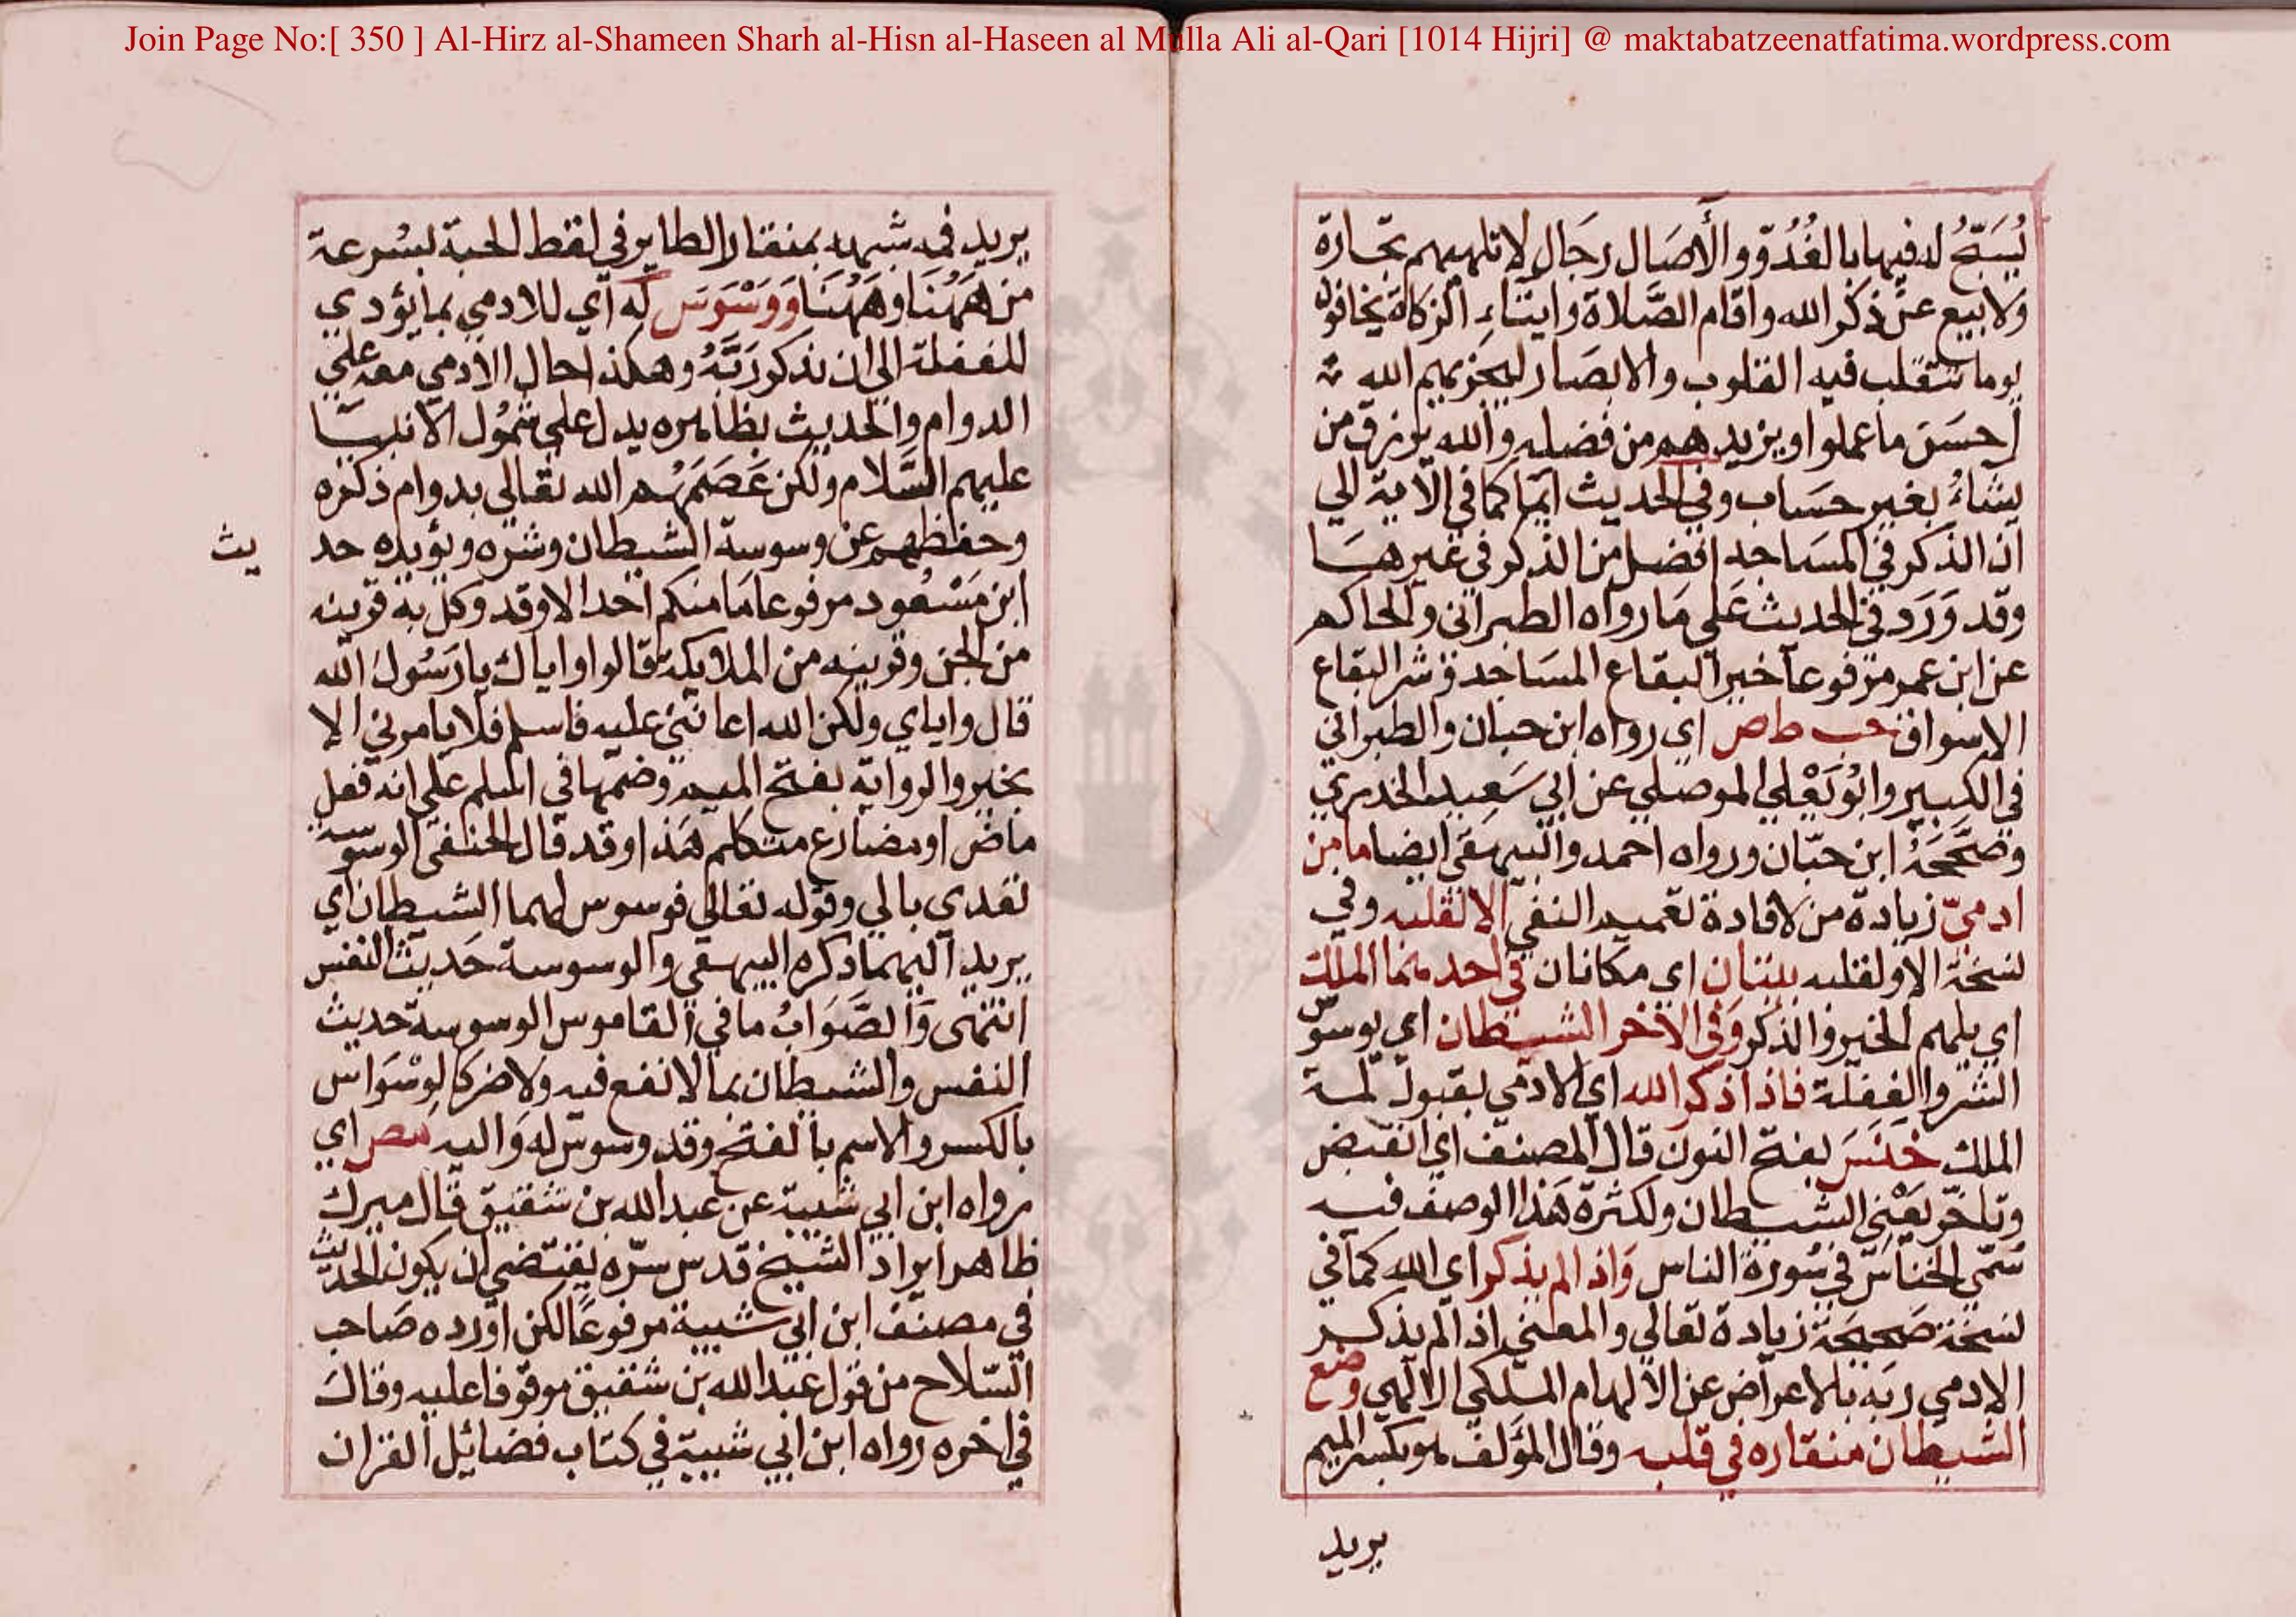 Join Page No:[ 350 ] Al-Hirz al-Shameen Sharh al-Hisn al-Haseen al Mulla Ali al-Qari [1014 Hijri] @ maktabatzeenatfatima.wordpress.com
يُسَبِّحُ له فيها بالغُدُوّ والأصَال رجَال لا تلهيهم تجارة
ولا بيع عن ذكر الله واقام الصَّلاة وايتاء الزكاة يخافون
يوما تتقلب فيه القلوب والابصَار ليجزيهم الله
احسَن ما عملوا ويزيدهم من فضله والله يرزق من
يشاءُ بغير حسَاب وفي الحديث ايما كما في الآية الي
ان الذكر في المسَاجد افضل من الذكر في غيرهَا
وقد وَرَد في الحديث عَلي مَا رواه الطبراني والحاكم
عن ابن عمر مرفوعا خير البقاع المسَاجد وشر البقاع
الاسواق حب ط ص اي رواه ابن حبان والطبراني
في الكبير وابُو يَعْلي الموصلي عن ابي سَعِيد الخدري
وصَحَّحَهُ ابن حبّان ورواه احمد والبيهقي ايضا ما من
ادميّ زيادة من لافادة تعميم النفي الا لقلبه وفي
نسخة الا ولقلبه بيتان اي مكانان في احدهما الملك
اي يلهم الخير والذكر وَفي الاخر الشيطان اي يوسوس
الشر والغفلة فاذا ذكر الله اي الادمي بقبول لمة
الملك خنَسَ بفتح النون قال المصنف اي انقبض
وتاخّر يَعْني الشيطان ولكثرة هَذا الوصف فيه
سُمّي الخناسّ في سُورة الناس وَاذا لم يذكر اي الله كما في
نسخة صَحيحَة زيادة تعالي والمعني اذا لم يذكر
الادمي ربه بالاعراض عن الالهام الملكي الالهي وضع
الشيطان منقاره في قلبه وقال المؤلف هو بكسر الميم
يريد
يريد فمه شبهه بمنقار الطاير في لقط الحبة لسُرعة
من هَهُنَا وهَهُنَا وَوَسْوَسَ له اي للادمي بما يؤدي
للغفلة الي ان يذكر رَبَّهُ وهكذا حال الادمي معه علي
الدوام والحديث بظاهره يدل علي شمُول الانبيَا
عليهم السَّلام ولكن عَصَمَهُم الله تعَالي بدوام ذكره
وحفظهم عن وسوسة الشيطان وشره ويؤيده حد
يث
ابن مَسْعُود مرفوعا مَا منكم احد الا وقد وكل به قرينه
من الجن وقرينه من الملايكة قالوا واياك يا رَسُول الله
قال واياي ولكن الله اعانني عليه فاسلم فلا يامرني الا
بخير والرواية بفتح الميم وضمها في اسلم علي انه فعل
ماض او مضارع متكلم هَذا وقد قال الحنفي الوسوسة
تعدي بالي وقوله تعَالي فوسوس لهما الشيطان اي
يريد اليهما ذكره البيهقي والوسوسة حَديث النفس
انتهى وَالصَّوَابُ ما في القاموس الوسوسة حديث
النفس والشيطان بما لا نفع فيه ولا ضر كالوِسْوَاس
بالكسر والاسم بالفتح وقد وسوس له وَاليه مص اي
رواه ابن ابي شيبة عن عبد الله بن شقيق قال ميرك
ظاهر ايراد الشيخ قدس سرّه يقتضي ان يكون الحديث
في مصنف ابن ابي شيبة مرفوعًا لكن اورده صَاحب
السّلاح من قول عبد الله بن شقيق موقوفا عليه وقال
في اخره رواه ابن ابي شيبة في كتاب فضائيل القران